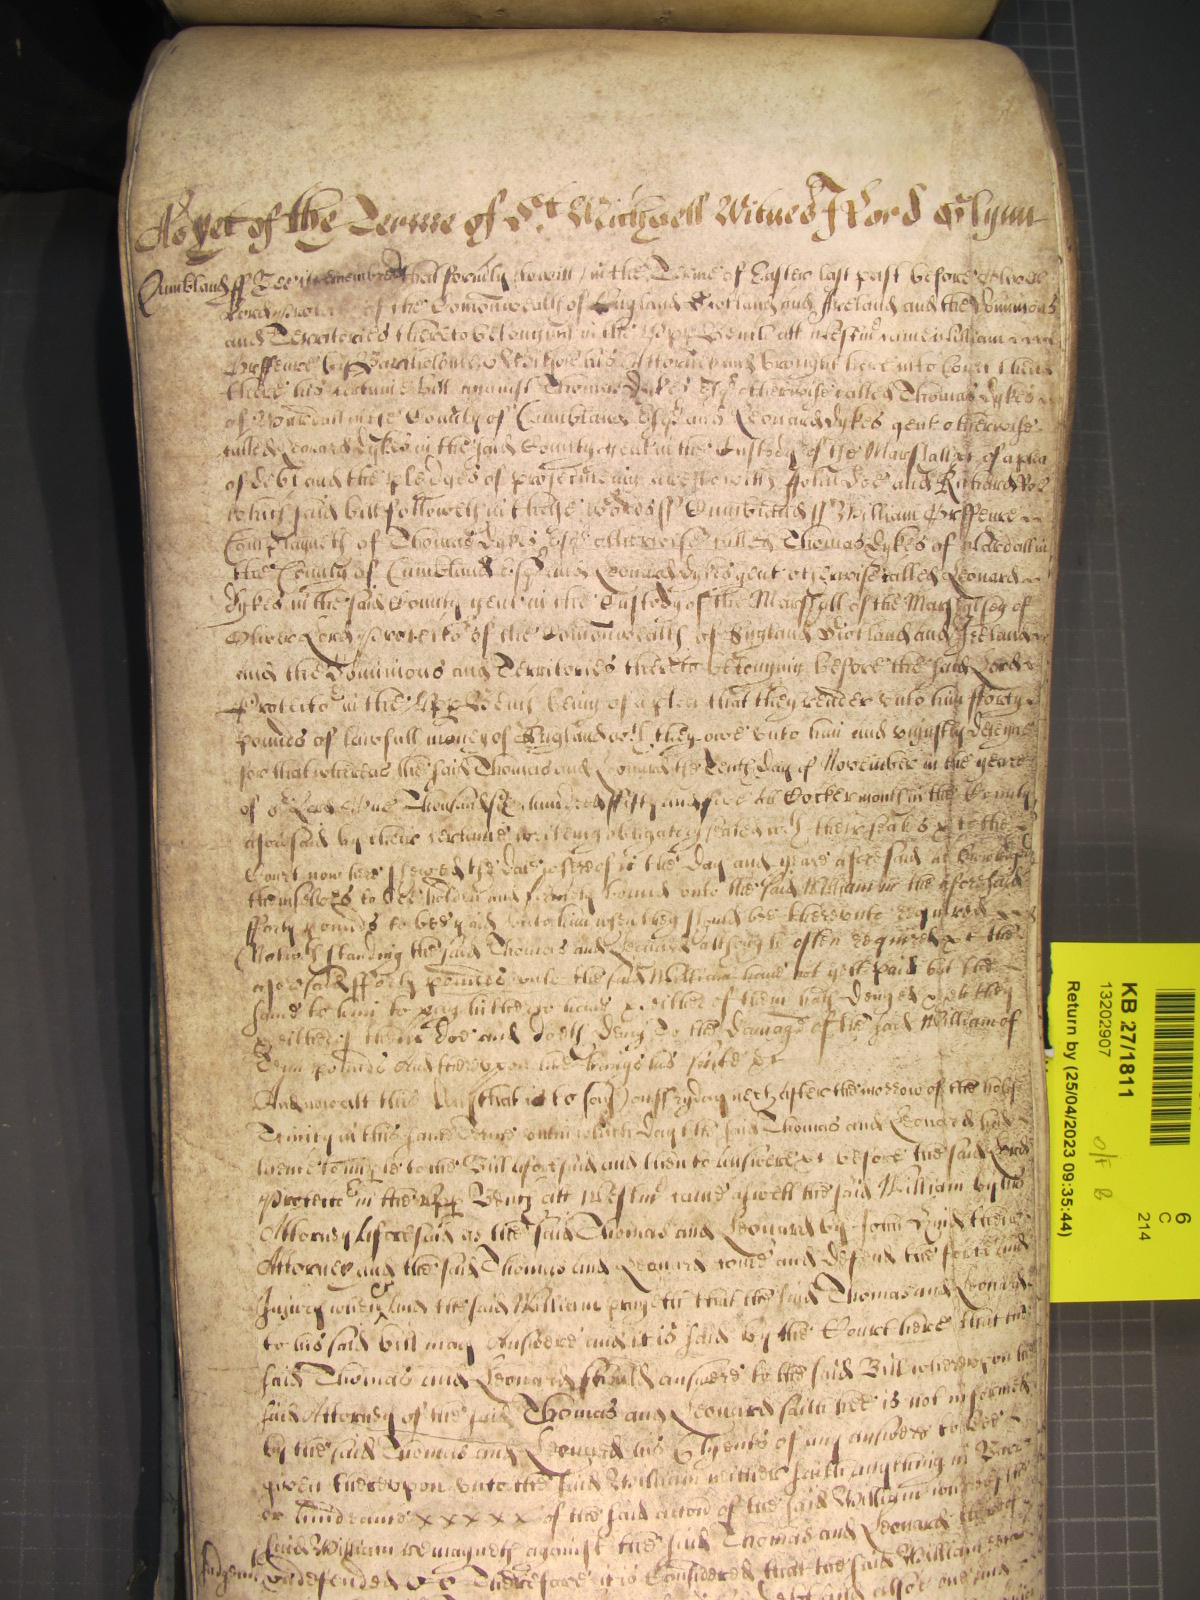 As yet of the Terme of St. Michaell Witnes J Ford Glynn
Cumbland ss Bee it remembred that formerly to witt in the Terme of Easter last past before Oliver
Lord of the Comonwealth of England Scotland and Ireland and the Dominions
and Territories thereto belonging in the Upp Bench att Westmr came William
by Bartholomew his Attorney and brought here into Court then
there his certaine bill against Thomas Dykes Esqr otherwise called Thomas Dykes
of in the County of Cumbland Esqr and Leonard Dykes gent otherwise
called Leonard Dykes in the said County gent in the Custody of the Marshall &c of a plea
of debt and the pledges of prosecuteing are to witt John Doe and Richard Roe
which said bill followeth in these words ss Cumbland ss William
Complayneth of Thomas Dykes Esqr otherwise called Thomas Dykes of Wardall in
the County of Cumbland Esqr and Leonard Dykes gent otherwise called Leonard
Dykes in the said County gent in the Custody of the Marshall of the Marshallsey of
Oliver Lord Protector of the Comonwealth of England Scotland and Ireland
and the Dominions and Territories thereto belonging before the said Lord
Protector in the Upp Bench being of a plea that they render unto him fforty
pounds of lawfull money of England wch they owe unto him and uniustly deteyne
for that whereas the said Thomas and Leonard the Tenth day of November in the yeare
of or Lord One Thousand six hundred ffifty and five att Cockermouth in the County
aforesaid by their certaine writeing obligatory sealed wth their seales & to the
Court now here shewed the date whereof is the day and yeare aforesaid
themselves to bee holden and firmely bound unto the said William in the aforesaid
fforty pounds to bee paid unto him when they should be thereunto required
Notwithstanding the said Thomas and Leonard although often required &c the
aforesaid fforty pounds unto the said William have not yett paid but the
same to him to pay hitherto have & either of them hath denyed & yet they
& either of them doe and doth deny To the damage of the said William of
Tenn pounds And thereupon hee brings his suite &c
And now att this day (that is to say) on ffryday next after the morrow of the holy
Trinity in this same Terme untill which day the said Thomas and Leonard had
leave to imple to the Bill aforesaid and then to answere &c before the said Lord
Protector in the Upp Bench att Westmr came aswell the said William by his
Attorney aforesaid as the said Thomas and Leonard by John their
Attorney and the said Thomas and Leonard come and defend the force and
Injury when &c and the said William prayeth that the said Thomas and Leonard
to his said bill may answere and it is said by the Court here that the
said Thomas and Leonard should answere to the said Bill whereupon the
said Attorney of the said Thomas and Leonard saith hee is not informed
by the said Thomas and Leonard his Clyents of any answere to bee
given thereupon unto the said William neither saith anything in Barr
or hinderance x x x x x of the said action of the said William whereby the
said William remayneth against the said Thomas and Leonard thereof
Judgment undefended &c Therefore it is Considered that the said William
KB 27/1811
13202907
Return by (25/04/2023 09:35:44)
6
C
214